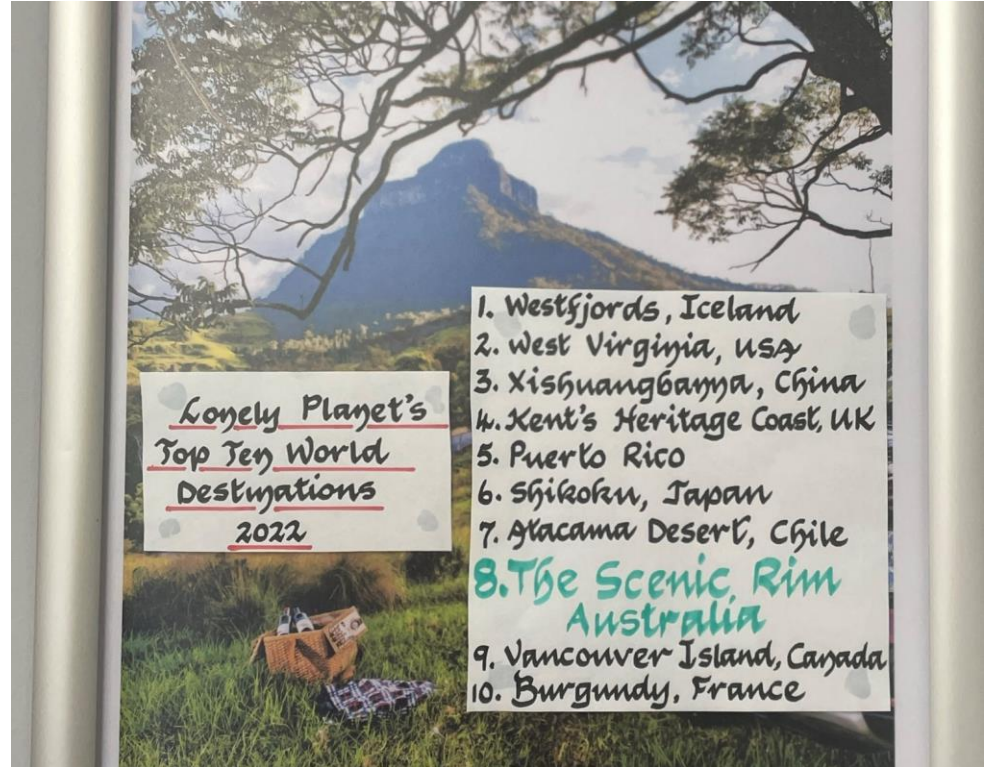 Lonely Planet's
Top Ten World
Destinations
2022
1. Westfjords, Iceland
2. West Virginia, USA
3. Xishuangbanna, China
4. Kent's Heritage Coast, UK
5. Puerto Rico
6. Shikoku, Japan
7. Atacama Desert, Chile
8. The Scenic Rim
Australia
9. Vancouver Island, Canada
10. Burgundy, France